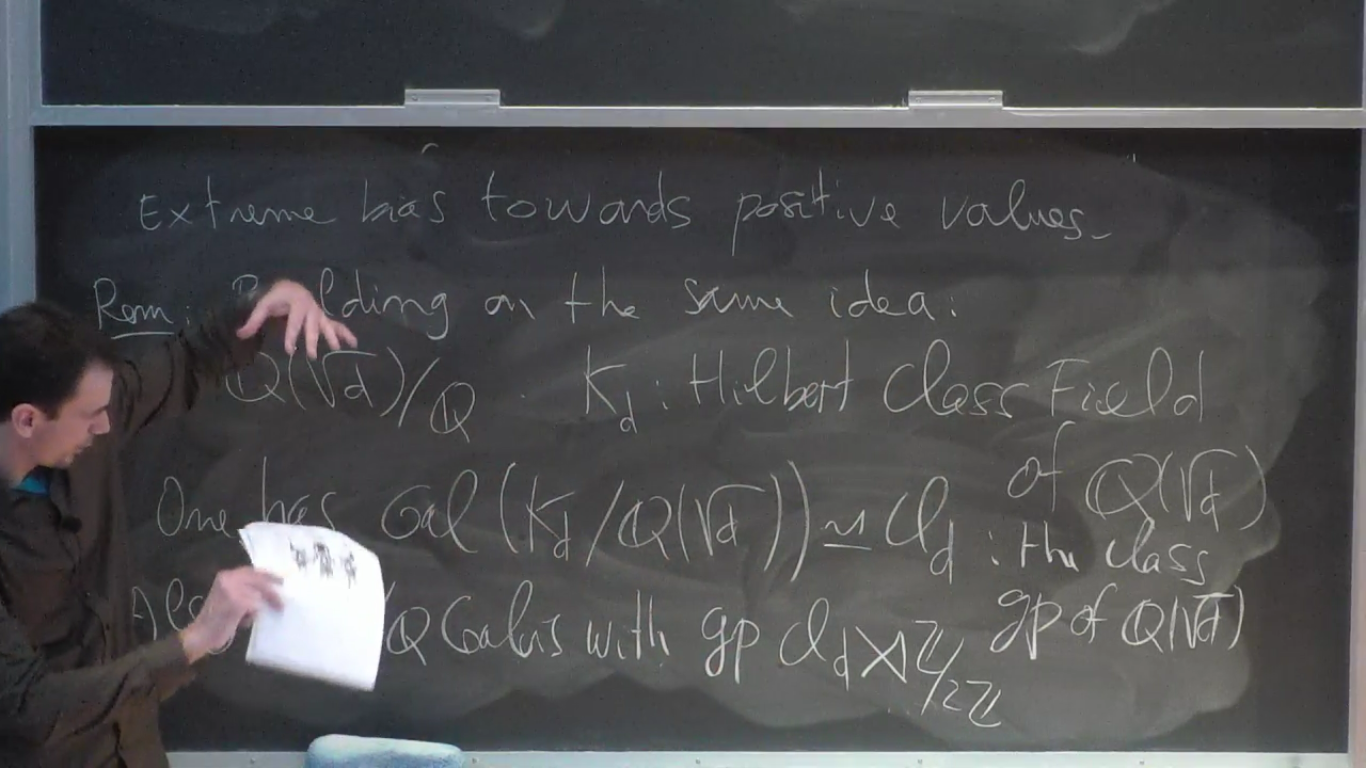 Extreme bias towards positive values.
Rem: B ilding on the same idea:
Q(√d)/Q . K_d : Hilbert Class Field
of Q(√d)
One has Gal (K_d/Q(√d)) ≃ Cl_d : the class
gp of Q(√d)
Als /Q Galois with gp Cl_d ⋊ Z/2Z